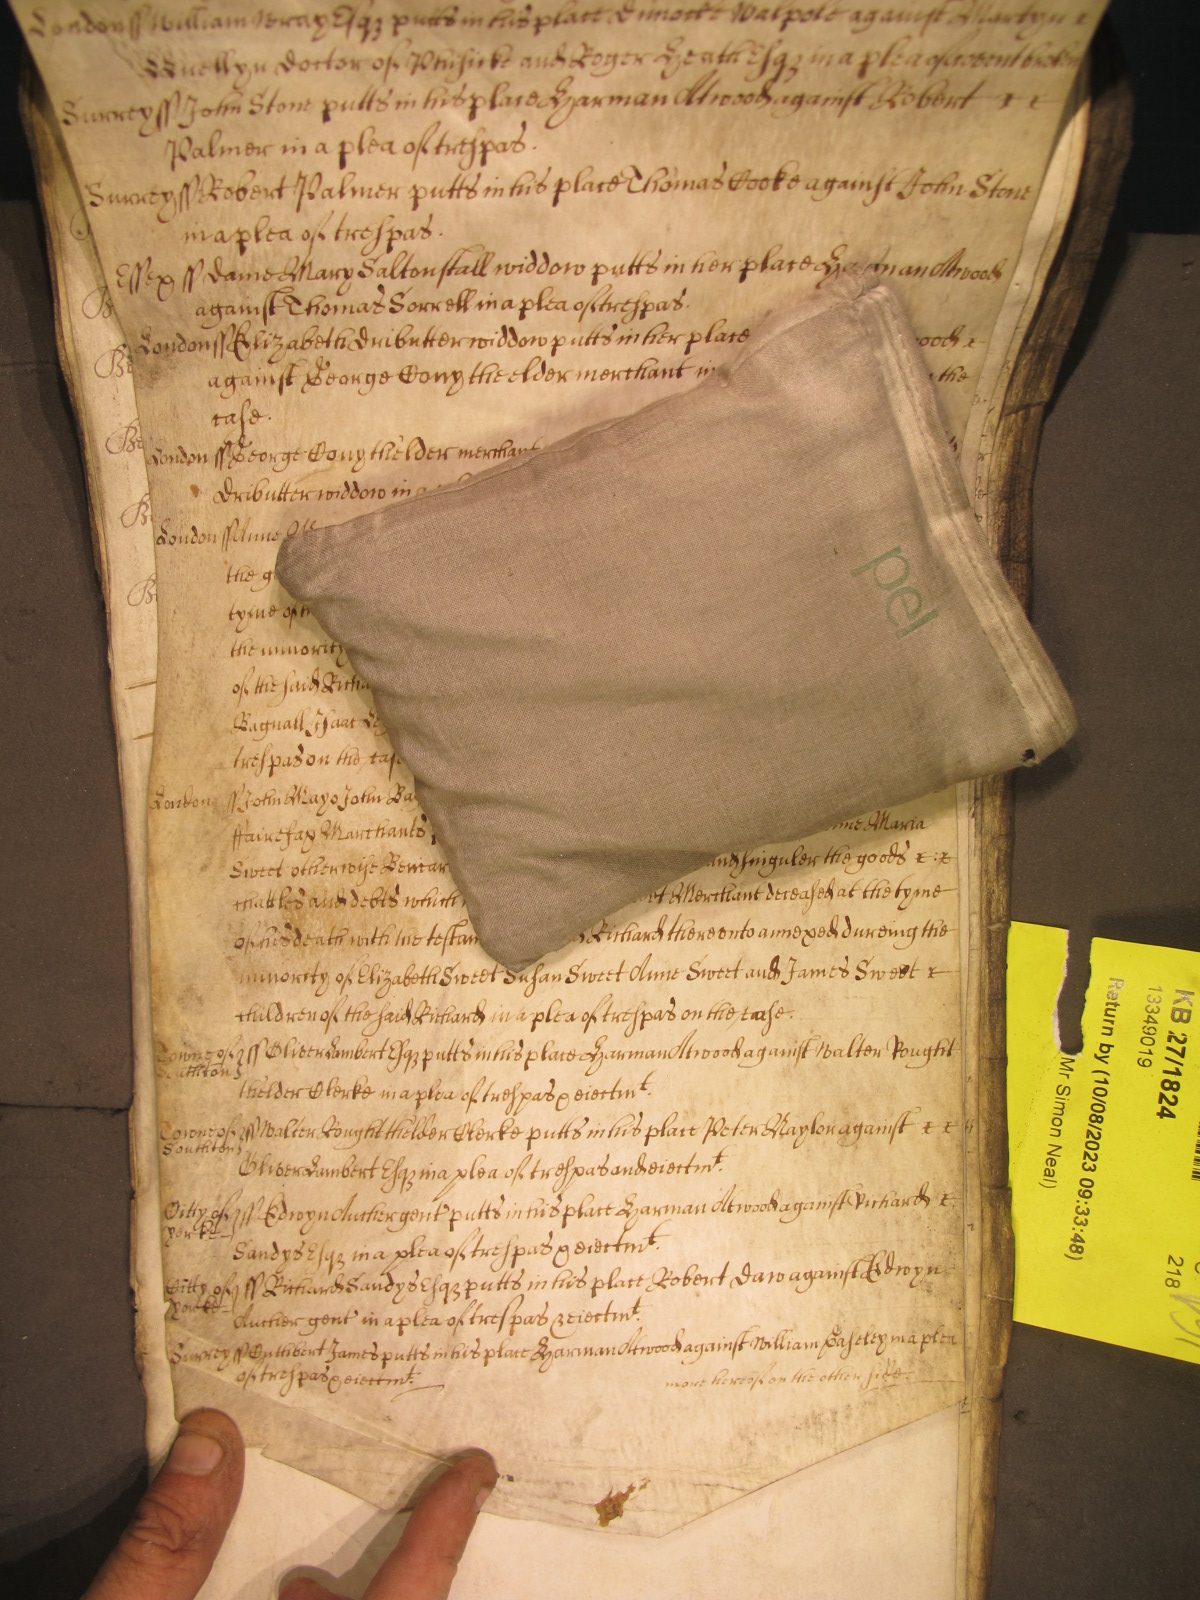 London ss William Wray Esqz putts in his place Dimocke Walpole against Martyn
Lluellyn Doctor of Phisicke and Roger Heath Esqz in a plea of covent broken
Surrey ss John Stone putts in his place Harman Atwood against Robert
Palmer in a plea of trespas.
Surrey ss Robert Palmer putts in his place Thomas Cooke against John Stone
in a plea of trespas.
Essex ss Dame Mary Saltonstall widdow putts in her place Harman Atwood
against Thomas Sorrell in a plea of trespas.
London ss Elizabeth Dributter widdow putts in her place ood
against George Cony the elder merchant in the
case.
London ss George Cony thelder merchant
Dributter widdow in a
London ss Anne
the g
tyme of
the minority
of the said Richa
Bagnall Isaac
trespas on the case
London ss John Mayo John Ba
ffairefax Marchants nne Maria
Sweet otherwise and singuler the goods
chattles and debts which et Merchant deceased at the tyme
of his death with the testam Richard thereonto annexed dureing the
minority of Elizabeth Sweet Susan Sweet Anne Sweet and James Sweet
children of the said Richard in a plea of trespas on the case.
Towne of Southton ss Oliver Lambert Esqz putts in his place Harman Atwood against Walter Rought
thelder Clerke in a plea of trespas & eiectmt.
Towne of Southton ss Walter Rought thelder Clerke putts in his place Peter Naylor against
Oliver Lambert Esqz in a plea of trespas and eiectmt.
Citty of Yorke ss Edwyn Aucher gent putts in his place Harman Atwood against Richard
Sandys Esqz in a plea of trespas & eiectmt.
Citty of Yorke ss Richard Sandys Esqz putts in his place Robert Daw against Edwyn
Aucher gent in a plea of trespas & eiectmt.
Surrey ss Cuthbert James putts in his place Harman Atwood against William Caseley in a plea
of trespas & eiectmt.
more hereof on the other side
pel
KB 27/1824
13349019
Return by (10/08/2023 09:33:48)
Mr Simon Neal)
218